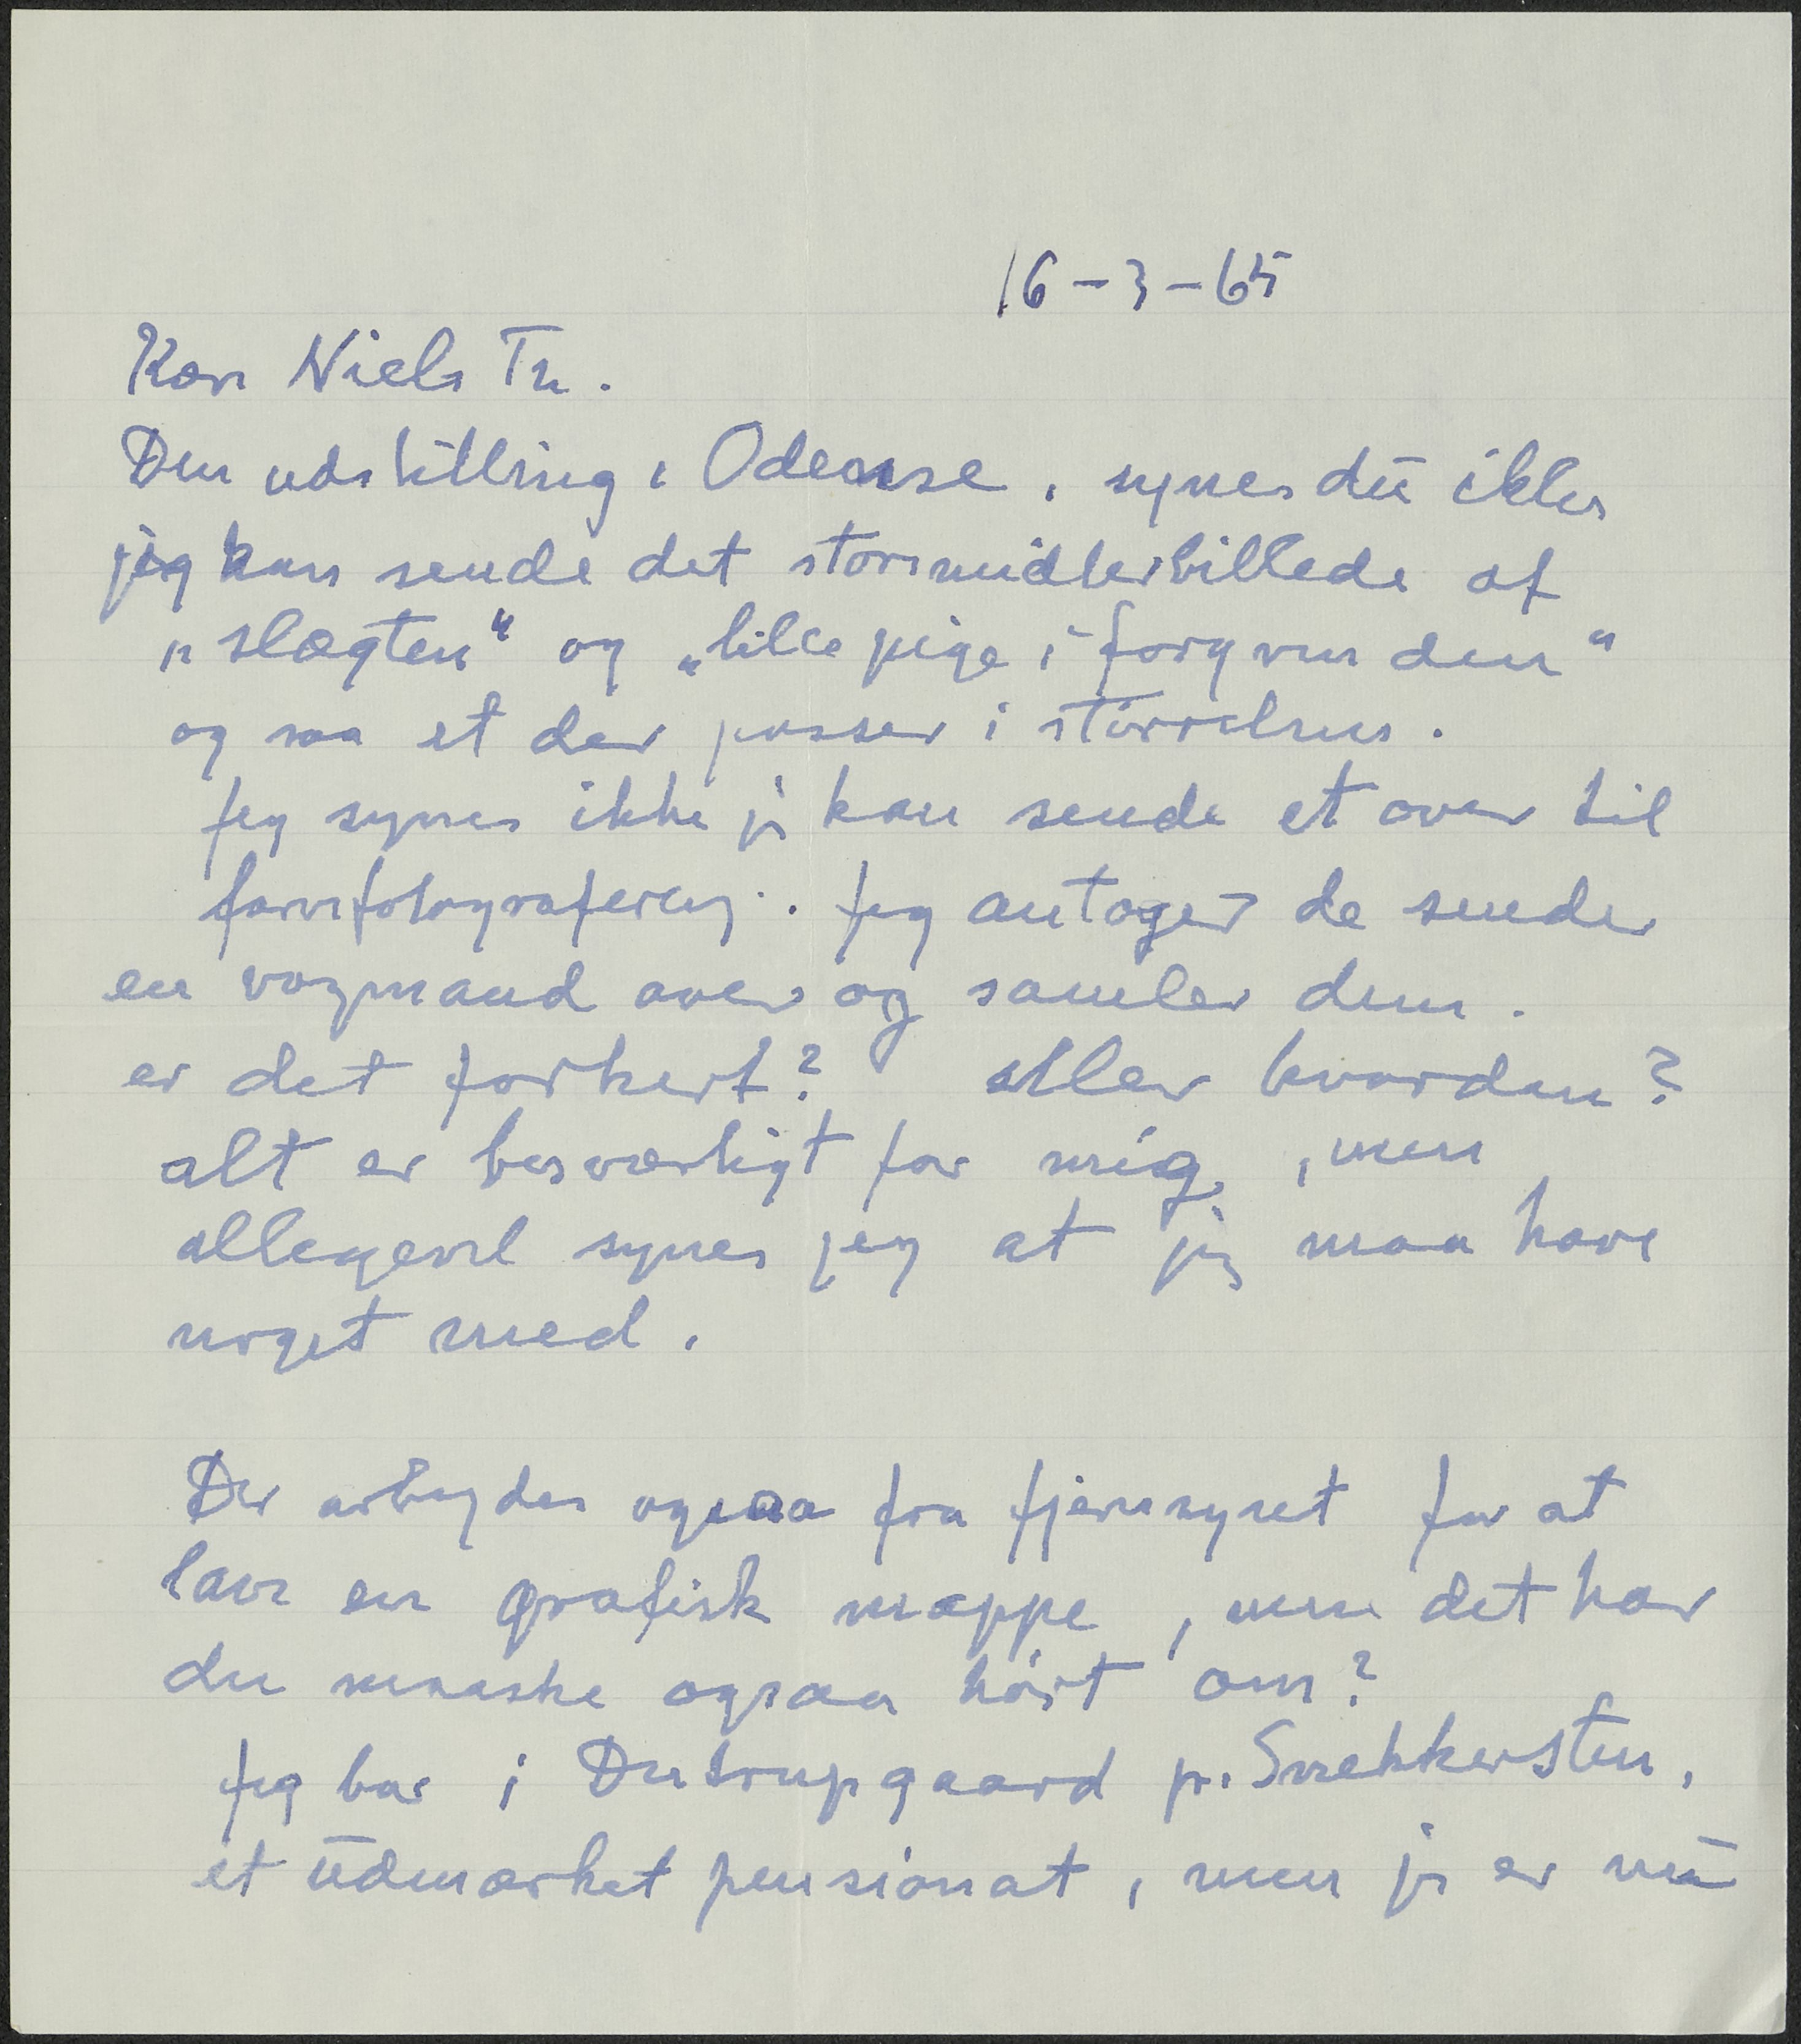 16-3-65
Kære Niels Th.
Den udstilling i Odense, synes du ikke
jeg kan sende det store midterbillede af
"slægten" og "lille pige i forgrunden"
og saa et der passer i størrelsen.
Jeg synes ikke jeg kan sende et over til
farvefotografering. Jeg antager de sender
en vognmand over og samler dem.
er det forkert? eller hvordan?
alt er besværligt for mig, men
allegevel synes jeg at jeg maa have
noget med.
Der arbejdes ogsaa fra fjernsynet for at
lave en grafisk mappe, men det har
du maaske ogsaa hørt om?
Jeg bor i pr. Snekkersten,
et udmærket pensionat, men jeg er nu